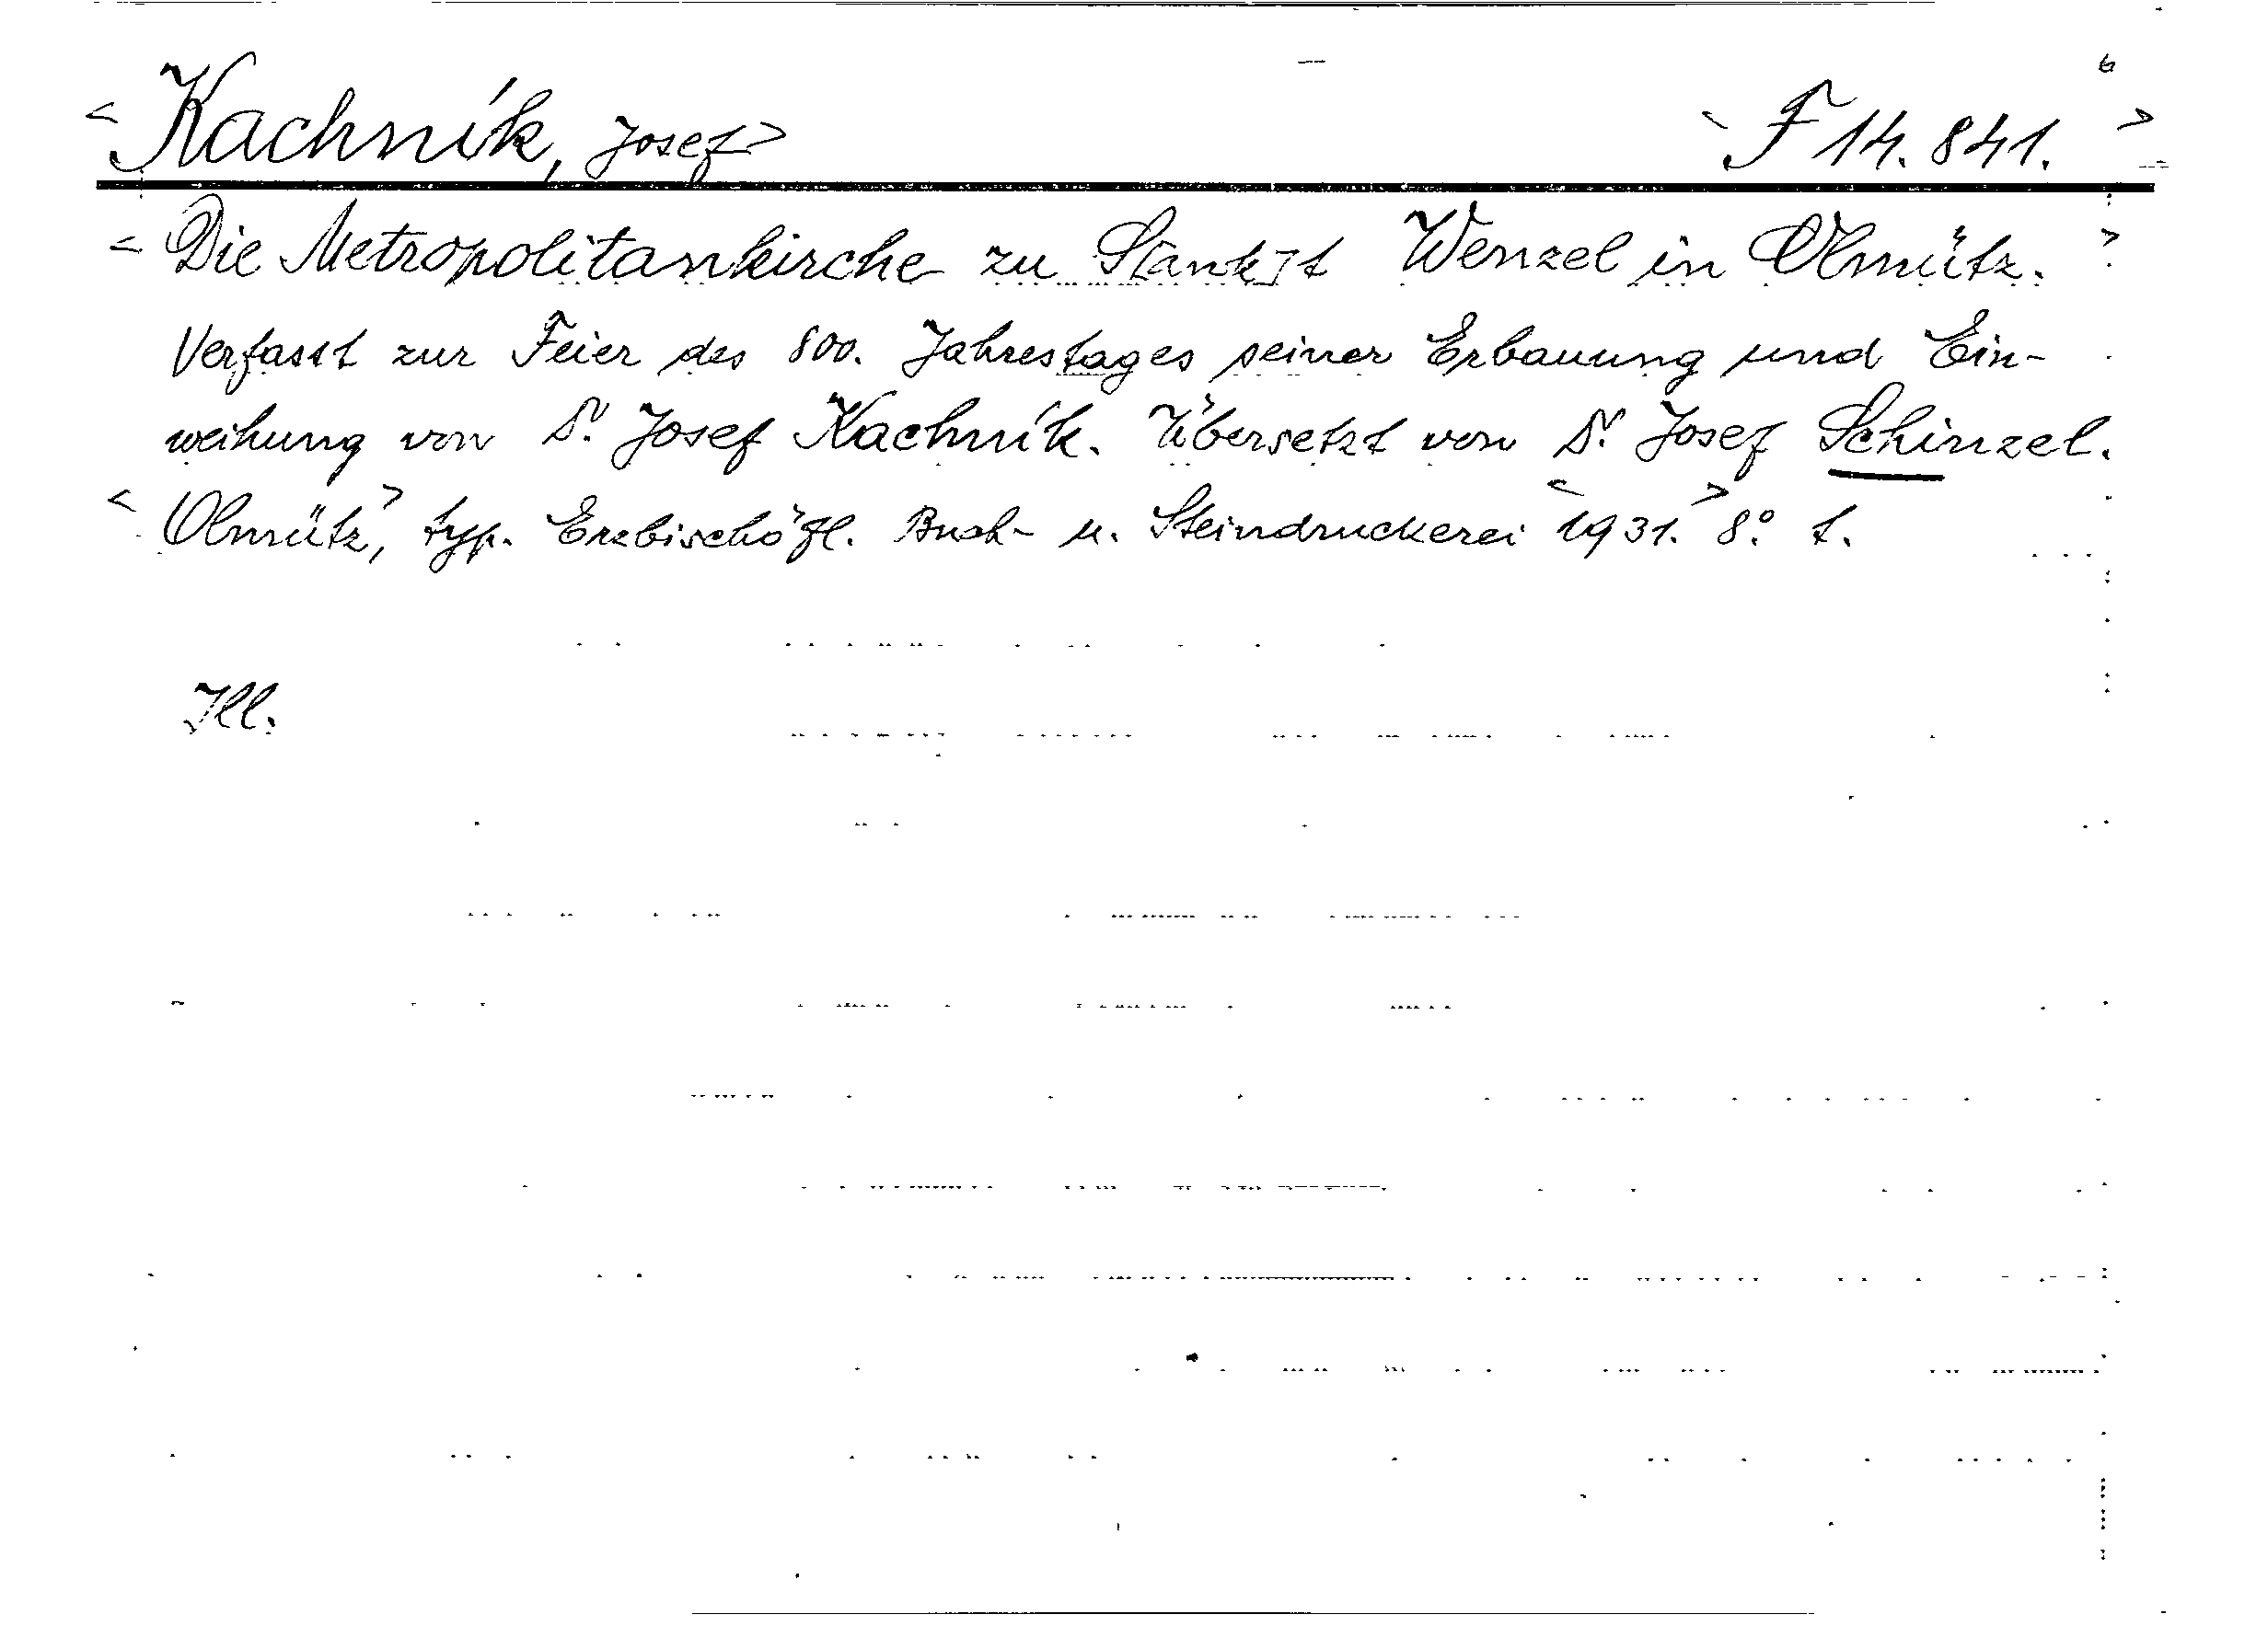 <Kachník, Josef> <F 14.841.>
<Die Metropolitankirche zu S[ank]t Wenzel in Olmütz.>
Verfasst zur Feier des 800. Jahrestages seiner Erbauung und Ein-
weihung von Dr. Josef Kachník. Übersetzt von Dr. Josef Schinzel.
<Olmütz,> typ. Erzbischöfl. Buch- u. Steindruckerei <1931.> 8° t.
Ill.